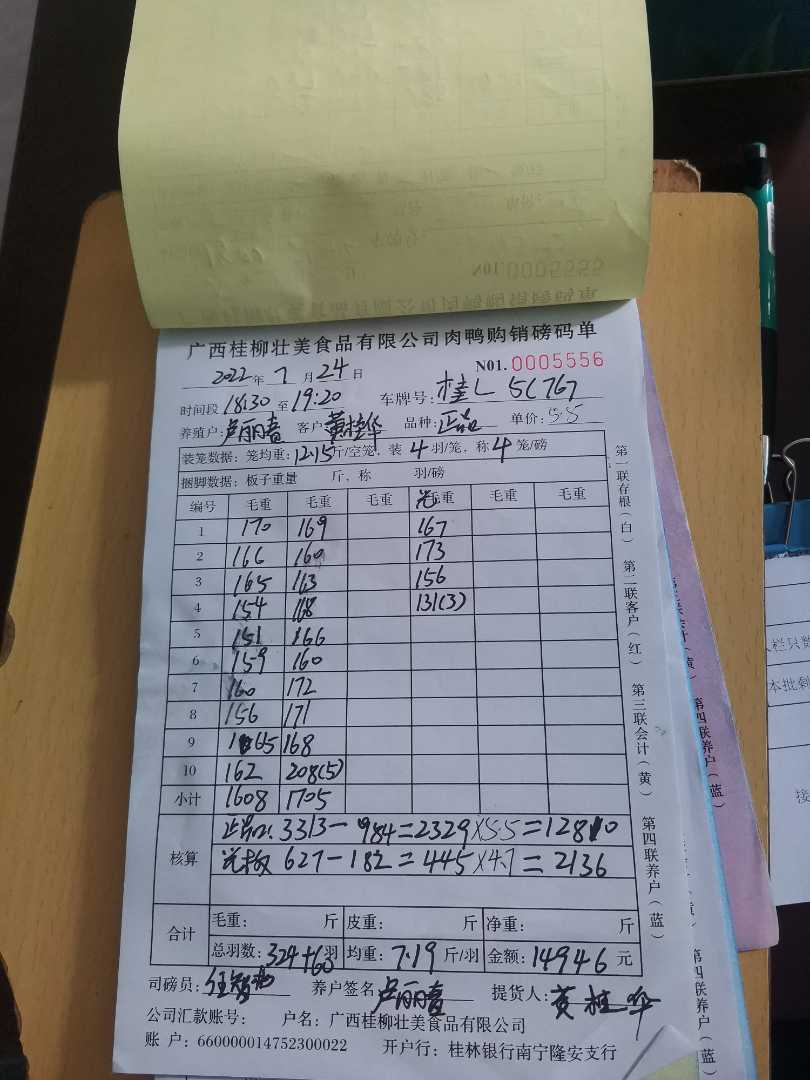 N01.0005555
广西桂柳壮美食品有限公司肉鸭购销磅码单
N01.0005556
2022年7月24日
时间段 18:30 至 19:20 车牌号: 桂L 5C767
养殖户: 卢丽春 客户 黄桂华 品种: 正品 单价: 5.5
装笼数据: 笼均重: 12.15斤/空笼, 装 4 羽/笼, 称 4 笼/磅
捆脚数据: 板子重量 斤, 称 羽/磅
编号 毛重 毛重 毛重 光毛重 毛重 毛重
1 170 169 167
2 166 160 173
3 165 163 156
4 154 168 131(3)
5 151 166
6 159 160
7 160 172
8 156 171
9 165 168
10 162 208(5)
小计 1608 1705
核算
3313-984=2329×5.5=12810
627-182=445×4.7=2136
合计
毛重: 斤 皮重: 斤 净重: 斤
总羽数: 324+60羽 均重: 7.19 斤/羽 金额: 14946 元
司磅员: 养户签名 卢丽春 提货人: 黄桂华
公司汇款账号: 户名: 广西桂柳壮美食品有限公司
账 户: 660000014752300022 开户行: 桂林银行南宁隆安支行
第一联存根(白) 第二联客户(红) 第三联会计(黄) 第四联养户(蓝)
第四联养户(蓝)
第四联养户(蓝)
栏只数
本批剩
接